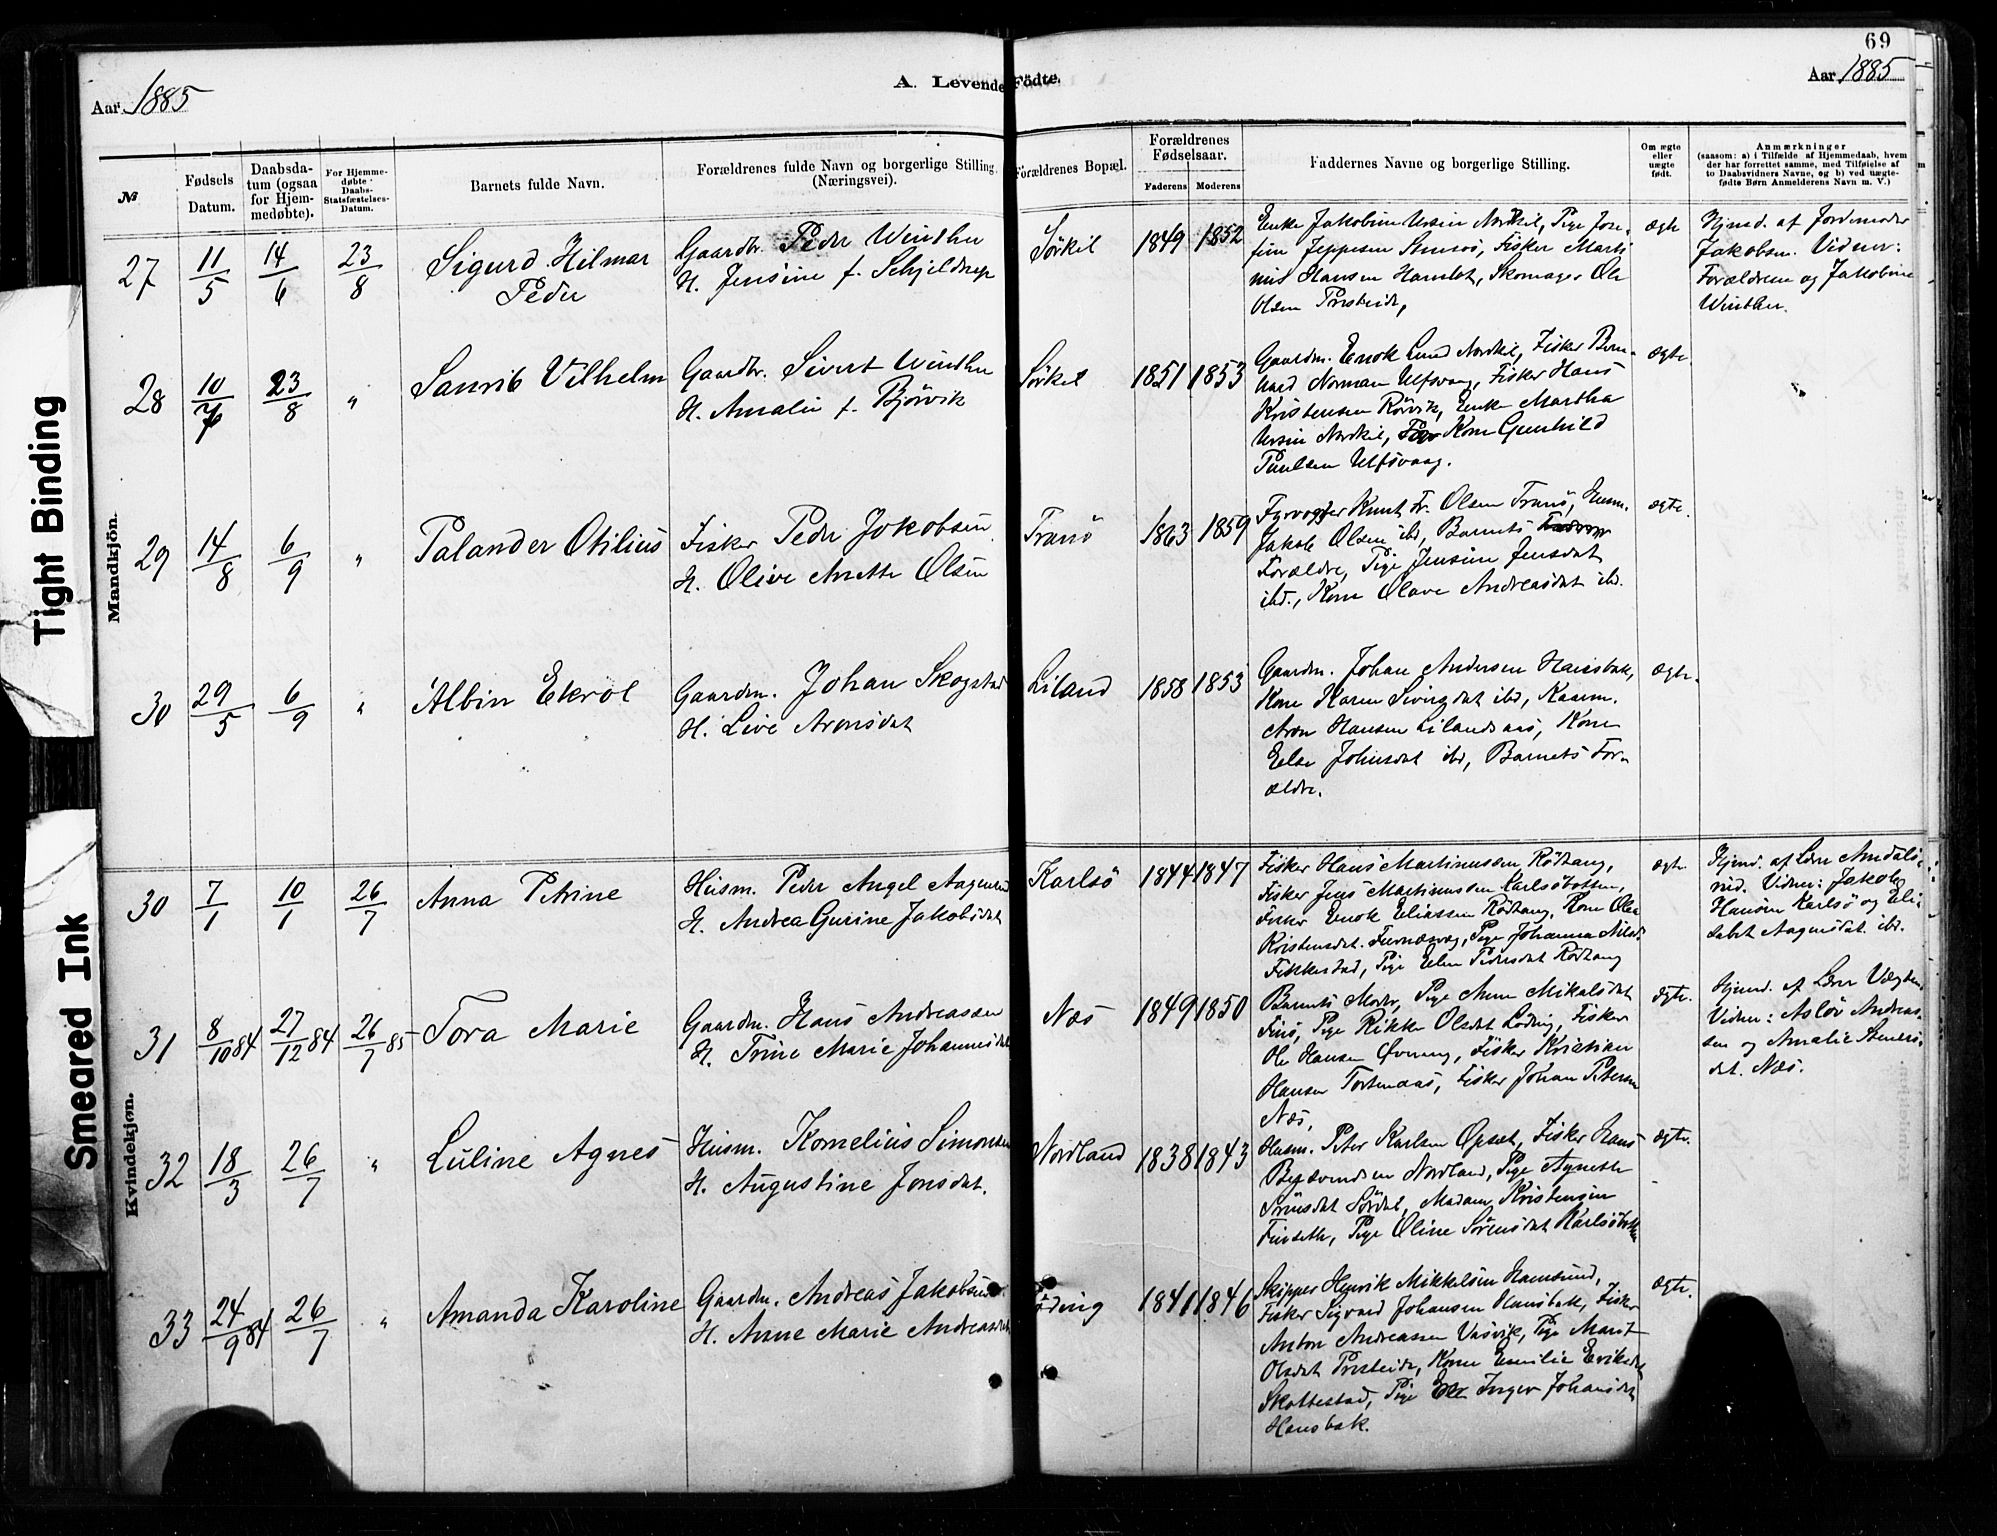 69
Aar 1885
A. Levende Födte.
Aar 1885
№
Fødsels Datum.
Daabsdatum (ogsaa for Hjemmedøbte).
For Hjemmedøbte Daabs-Statsfæstelses-Datum.
Barnets fulde Navn.
Forældrenes fulde Navn og borgerlige Stilling. (Næringsvei).
Forældrenes Bopæl.
Forældrenes Fødselsaar.
Faderens
Moderens
Faddernes Navne og borgerlige Stilling.
Om ægte eller uægte født.
Anmærkninger
(saasom: a) i Tilfælde af Hjemmedaab, hvem der har forrettet samme, med Tilføielse af to Daabsvidners Navne, og b) ved uægtefødte Børn Anmelderens Navn m. V.)
Tight Binding
Mandkjön.
27 11/5 14/6 23/8
Sigurd Hilmar
Peder
Gaardbr. Peder Winther
H. Jensine f. Schjeldrup
Sørkil 1849 1852
Enke Jakobine Ursin Nordkil, Pige Jose-
fine Jeppesen Stensø, Fisker Marti
nus Hansen Hamlot, Skomager Ole
Olsen Presteide,
ægte
Hjemd. af Jordemoder
Jakobsen. Vidner:
Forældrene og Jakobine
Winther.
28 10/7 23/8 "
Sanrib Vilhelm
Gaardbr. Sivert Winther
H. Amalie f. Björvik
Sørkil 1851 1853
Gaardm. Enok Lund Nordkil, Fisker Bern-
hard Norman Ulfsvaag, Fisker Hans
Kristensen Rörvik, Enke Martha
Ursin Nordkil, Kone Gunhild
Paulsen Ulfsvaag.
ægte
29 14/8 6/9 "
Palander Otilius
Fisker Peder Jakobsen
H. Olive Anette Olsen
Tranö 1863 1859
Fyrvogter Knut Fr. Olsen Tranö, Husm.
Jakob Olsen ibd, Barnets
Forældre, Pige Jensine Jensdat
ibd., Kone Olave Andreasdat ibd.
ægte.
30 29/5 6/9 "
Albin Ekrol
Gaardm. Johan Skogstad
H. Live Aronsdat
Liland 1858 1853
Gaardm. Johan Andersen Hansbak,
Kone Karen Sivertsdat ibd, Kaarm.
Aron Hansen Lilandsaas, Kone
Else Johnsdat ibd, Barnets For-
ældre.
ægte.
Smeared Ink
Kvindekjön.
30 7/1 10/1 26/7
Anna Petrine
Husm. Peder Angel Aagensen
H. Andrea Gurine Jakobsdat
Karlsö 1844 1847
Fisker Hans Martinussen Rödtang,
Fisker Jens Martinussen Karlsöbotten,
Fisker Enok Eliassen Rödtang, Kone Olea
Kristensdat. Finnesvag, Pige Johanna Nilsd.
Fikkestad, Pige Elen Pedersdat Rödtang
ægte
Hjemd. af Lærer Andals-
rud. Vidner: Jakob
Hansen Karlsö og Eli-
sabet Aagensdat. ibd.
31 8/10 84 27/12 84 26/7 85
Tora Marie
Gaardm. Hans Andreassen
H. Trine Marie Johannesdat
Næs 1849 1850
Barnets Moder, Pige Anne Mikalsdat
Finö, Pige Rikke Olsdat Löding, Fisker
Ole Hansen Øvrevag, Fisker Kristian
Hansen Tortenaas, Fisker Johan Petersen
Næs.
ægte.
Hjemd. af Lærer
Vidner: Aslöv Andreas-
sen og Amalie Steners-
dat. Næs.
32 18/3 26/7 "
Luline Agnes
Husm. Kornelius Simonsen
H. Augustine Jonsdat.
Nordland 1838 1843
Husm. Peter Karlsen Opsat, Fisker Hans
Nordland, Pige Agnethe
Sörensdat Sördal, Madam Kristensen
Finseth, Pige Oline Sörensdat Karlsöbotten
ægte.
33 24/9 84 26/7 "
Amanda Karoline
Gaardm. Andreas Jakobsen
H. Anne Marie Andreasdat
Löding 1841 1846
Skipper Henrik Mikkelsen Hamsund,
Fisker Sigvard Johansen Hansbak, Fisker
Anton Andreassen Vasvik, Pige Marit
Olsdat Presteide, Kone Emilie Eriksdat
Skottestad, Pige Inger Johansdat
Hansbak.
ægte.